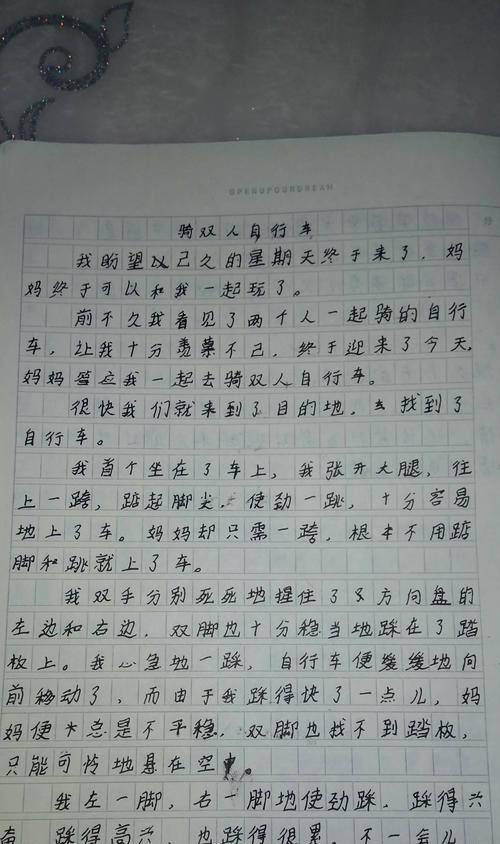 OPENUPOURDREAM
骑双人自行车
我盼望以己久的星期天终于来了，妈
妈终于可以和我一起玩了。
前不久我看见了两个人一起骑的自行
车，让我十分羡慕不己，终于迎来了今天，
妈妈答应我一起去骑双人自行车。
很快我们就来到了目的地，去找到了
自行车。
我首个坐在了车上，我张开大腿，往
上一跨，踮起脚尖，使劲一跳，十分容易
地上了车。妈妈却只需一跨，根本不用踮
脚和跳就上了车。
我双手分别死死地握住了方向盘的
左边和右边，双脚也十分稳当地踩在了踏
板上。我心急地一踩，自行车便缓缓地向
前移动了，而由于我踩得快了一点儿，妈
妈便总是不平稳，双脚也找不到踏板，
只能可怜地悬在空中。
我左一脚，右一脚地使劲踩，踩得兴
奋，踩得高兴，也踩得很累。不一会儿